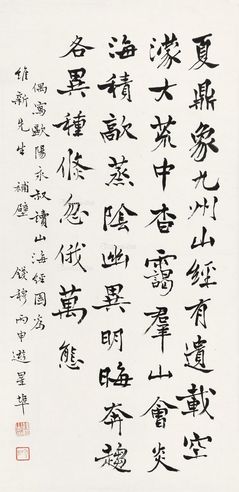 夏鼎象九州山經有遺載空
濛大荒中杳靄羣山會炎
海積歊蒸陰幽異明晦奔趨
各異種倏忽俄萬態
偶寫歐陽永叔讀山海經圖為
維新先生補壁 錢穆丙申遊星埠